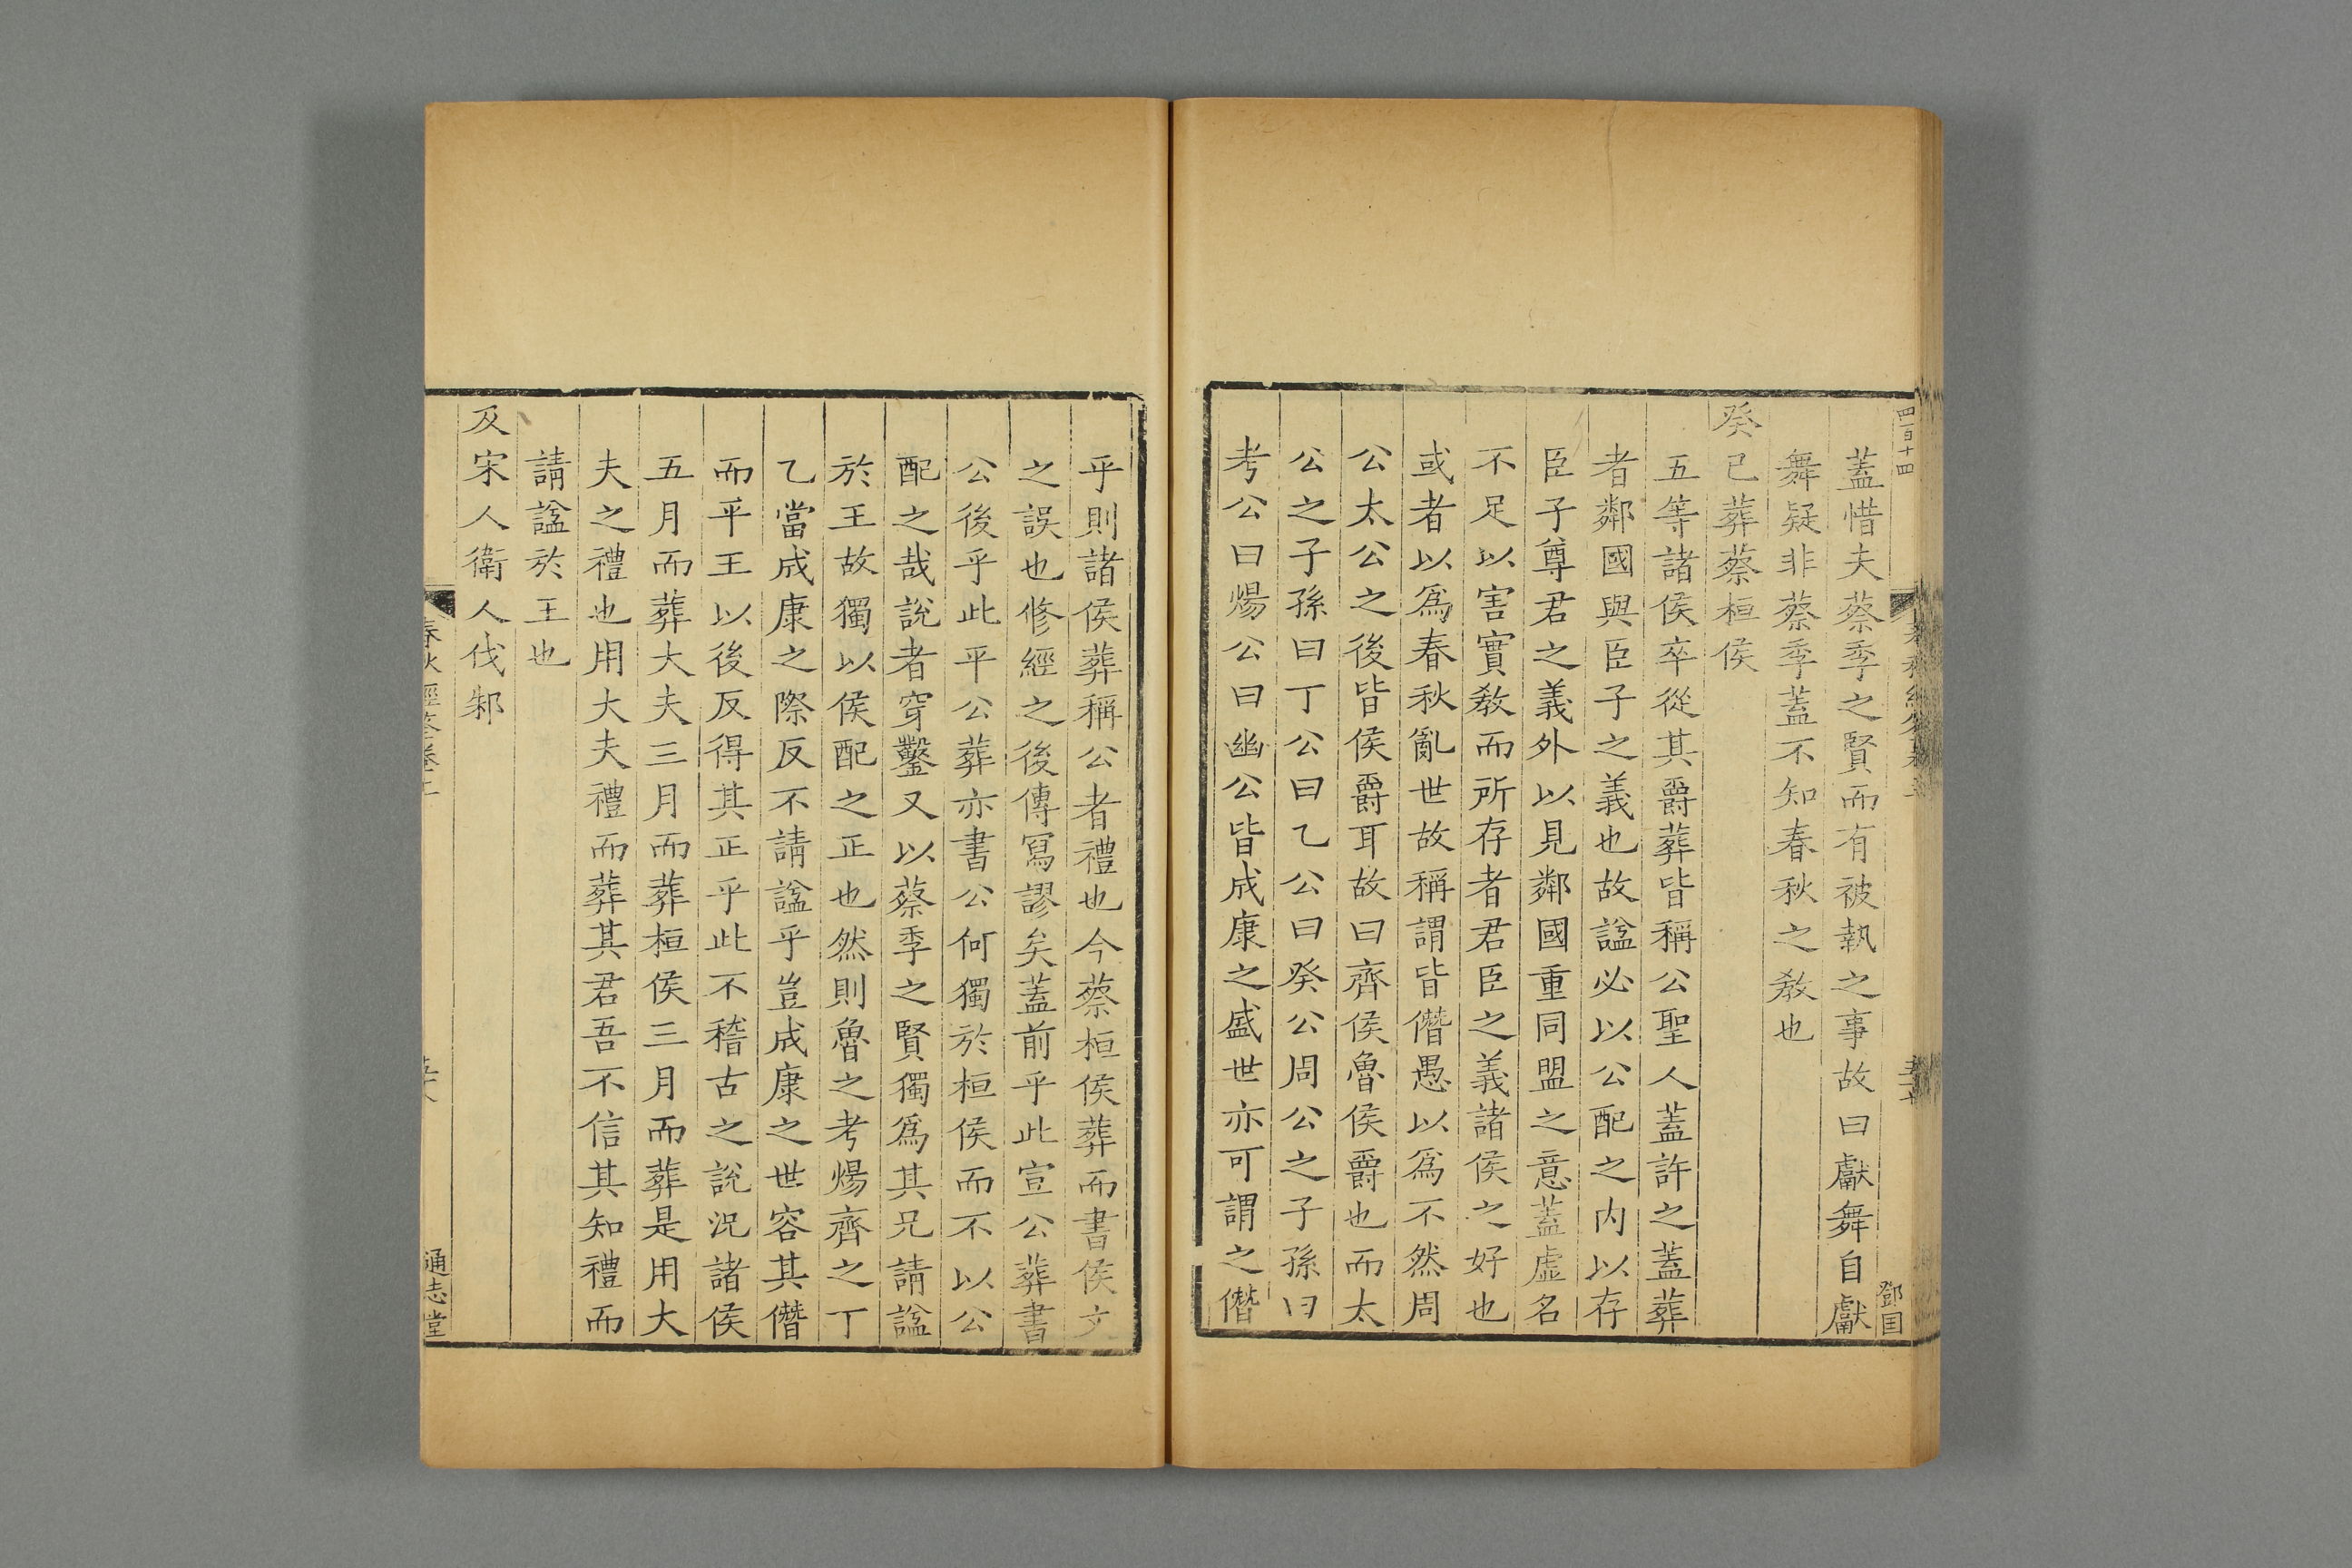 四百十四
鄧国
蓋惜夫蔡季之賢而有被執之事故曰獻舞自獻
舞疑非蔡季蓋不知春秋之教也
癸巳葬蔡桓侯
五等諸侯卒從其爵葬皆稱公聖人蓋許之蓋葬
者鄰國與臣子之義也故諡必以公配之内以存
臣子尊君之義外以見鄰國重同盟之意蓋虛名
不足以害實教而所存者君臣之義諸侯之好也
或者以爲春秋亂世故稱謂皆僭愚以爲不然周
公太公之後皆侯爵耳故曰齊侯魯侯爵也而太
公之子孫曰丁公曰乙公曰癸公周公之子孫曰
考公曰煬公曰幽公皆成康之盛世亦可謂之僭
乎則諸侯葬稱公者禮也今蔡桓侯葬而書侯文
之誤也修經之後傳寫謬矣蓋前乎此宣公葬書
公後乎此平公葬亦書公何獨於桓侯而不以公
配之哉說者穿鑿又以蔡季之賢獨爲其兄請諡
於王故獨以侯配之正也然則魯之考煬齊之丁
乙當成康之際反不請諡乎豈成康之世容其僭
而平王以後反得其正乎此不稽古之說況諸侯
五月而葬大夫三月而葬桓侯三月而葬是用大
夫之禮也用大夫禮而葬其君吾不信其知禮而
請諡於王也
及宋人衛人伐邾
春秋經筌卷二
通志堂